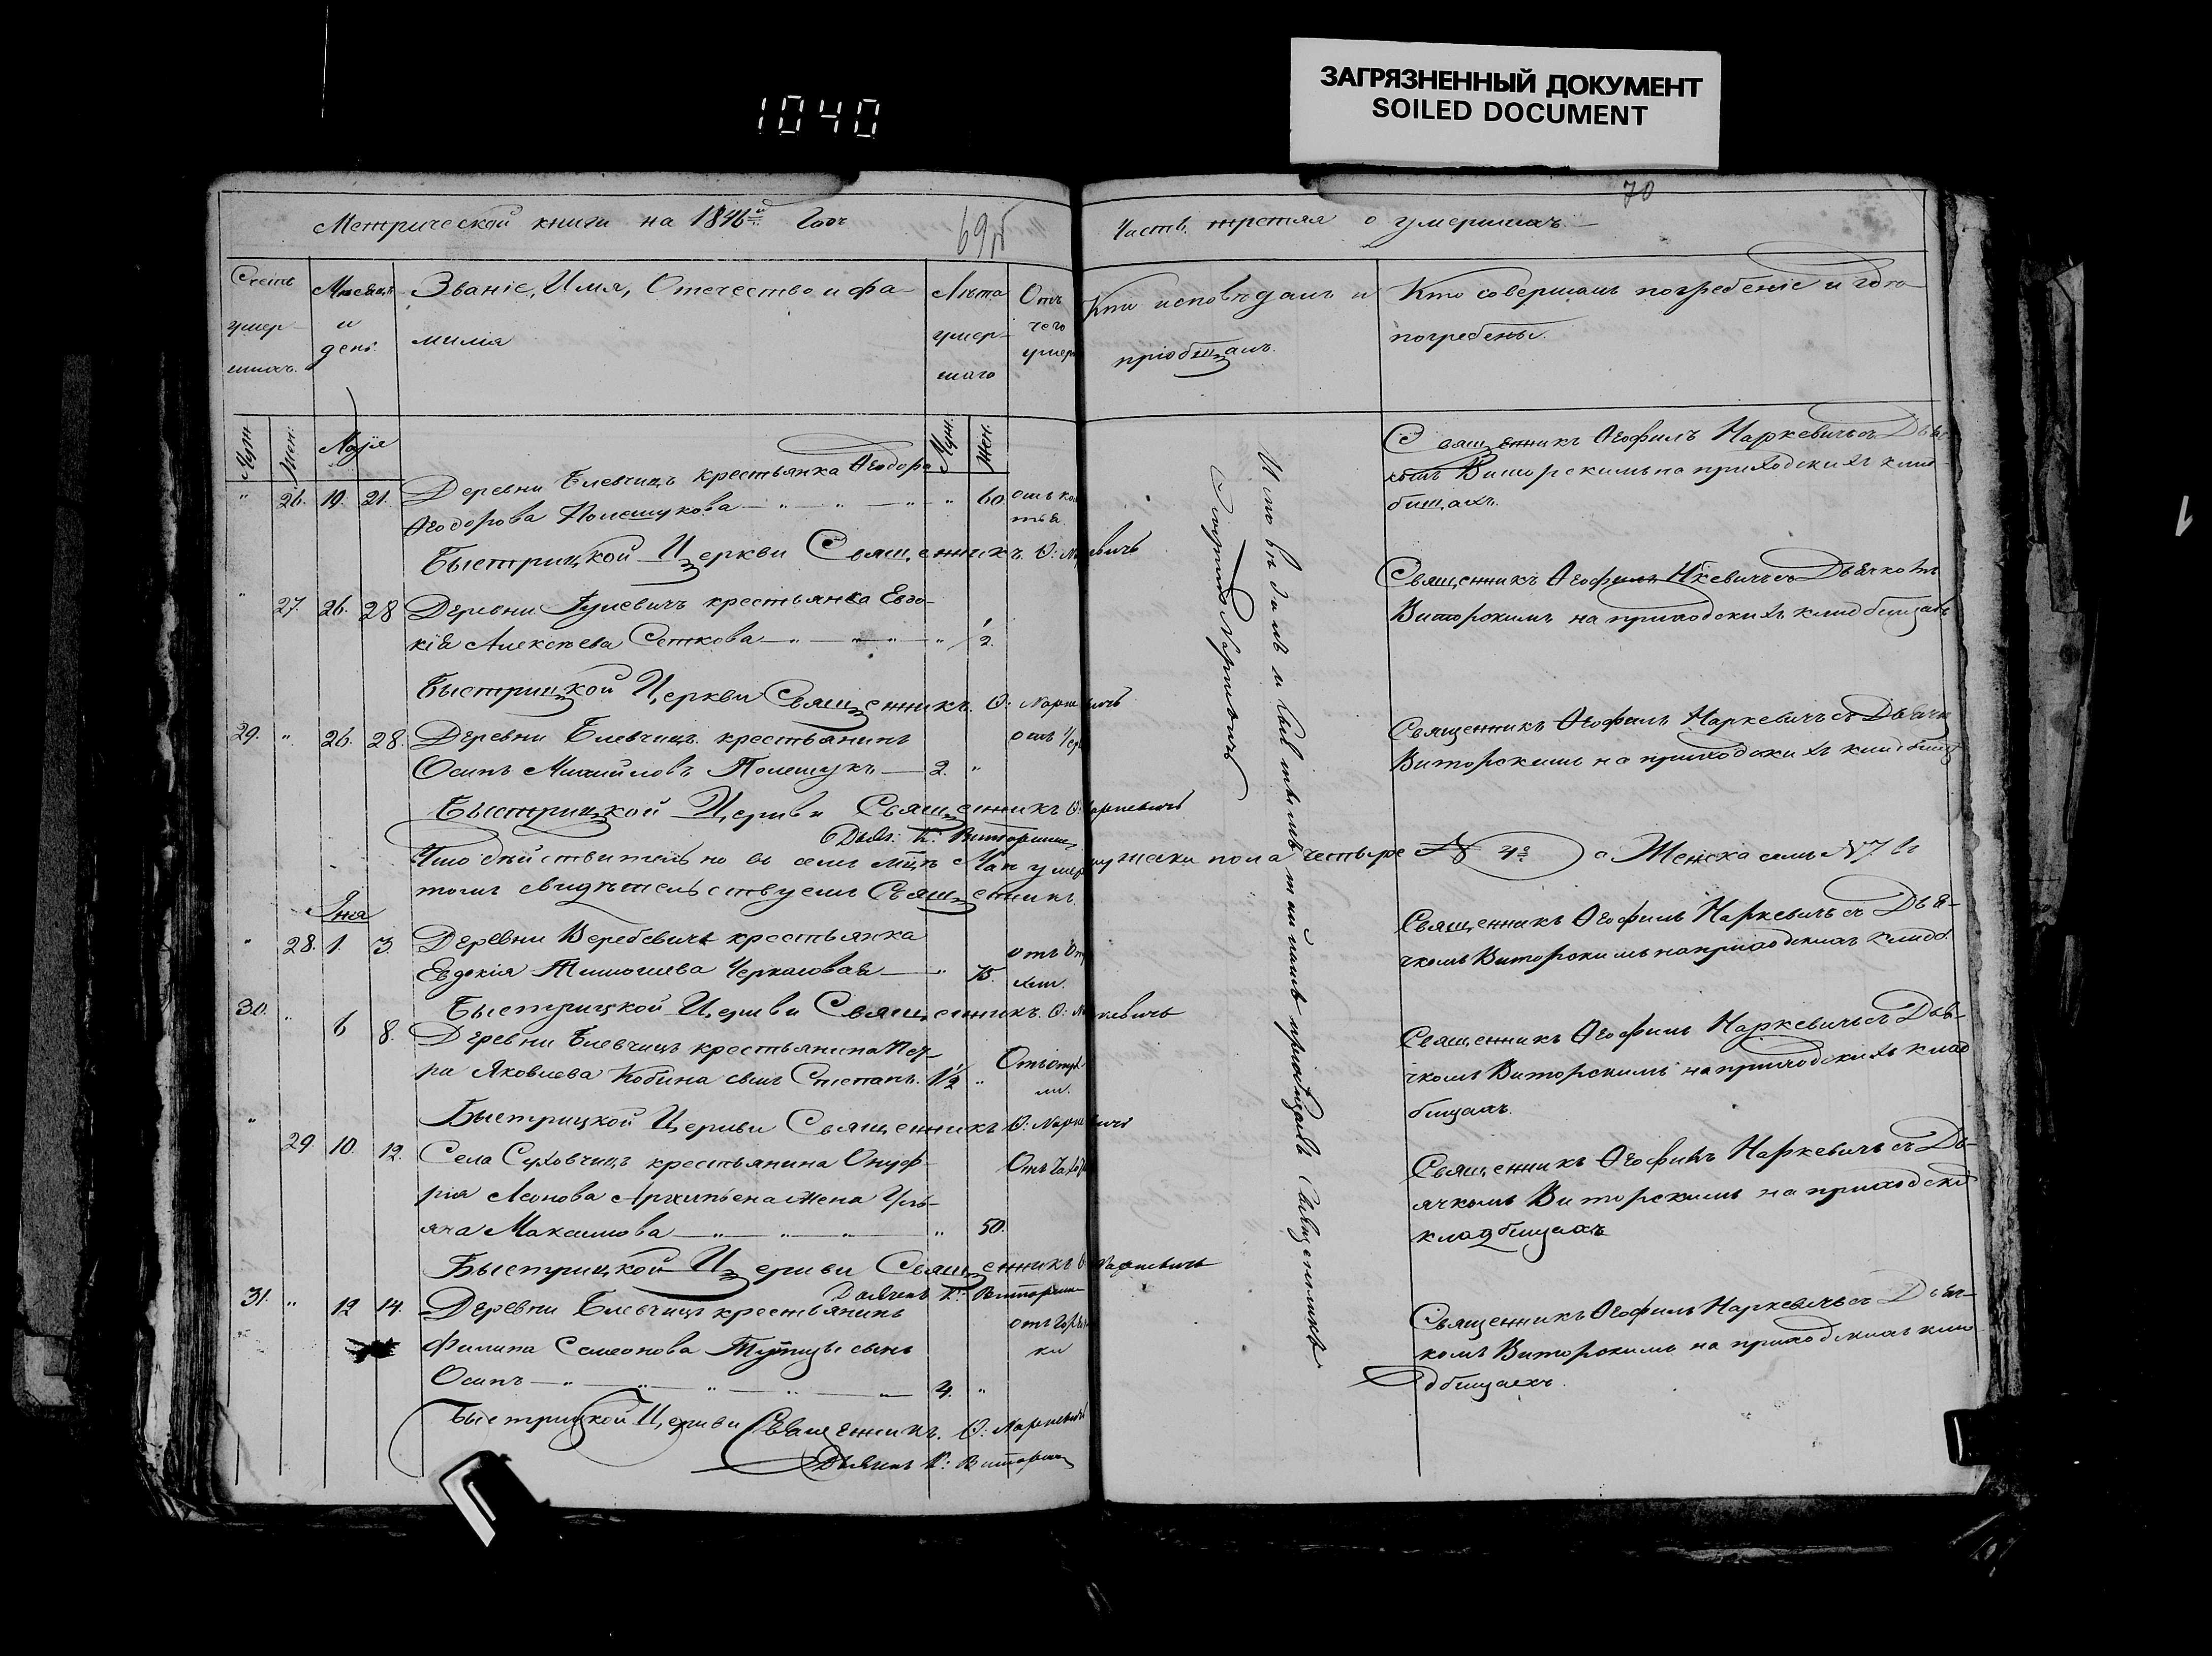 1040
ЗАГРЯЗНЕННЫЙ ДОКУМЕНТ
SOILED DOCUMENT
Метрической книги на 1846й Годъ
69об
Часть третяя о умершихъ
70
Счетъ умер-шихъ.
Мѣсяцъ и день.
Званіе, Имя, Отечество и фа-
милія
Лѣта умер-шаго
Отъ чего умеръ
Кто исповѣдалъ и
пріобщалъ.
Кто совершалъ погребеніе и гдѣ
погребены.
Муж. Жен. Маія Муж. Жен.
" 26. 19. 21. Деревни Блевчицъ крестьянка Ѳеодора
Ѳеодорова Полещукова " 60.
Быстрицкой Церкви Священникъ Ѳ: Наркевичъ
Священникъ Ѳеофилъ Наркевичъ съ
Виторскимъ на приходскихъ клад-
бищахъ.
" 27. 26. 28 Деревни крестьянка Евдо-
кія Алексѣева Сеткова " 1/2
Быстрицкой Церкви Священникъ Ѳ: Наркевичъ
Священникъ Ѳеофилъ съ Дьячкомъ
Виторскимъ на приходскихъ кладбищахъ
29. " 26. 28. Деревни Блевчицъ крестьянинъ
Осипъ Михайловъ Полещукъ 2. "
Быстрицкой Церкви Священникъ Ѳ: Наркевичъ
Священникъ Ѳеофилъ Наркевичъ съ
Виторскимъ на приходскихъ
Дьяч: К: Виторскій
Что дѣйствительно въ семъ мцѣ Маіи мужска пола четыре № 4 а Женска семь № 7. въ
томъ свидѣтельствуемъ Священникъ
Іюня
" 28. 1. 3. Деревни Веребевичъ крестьянка
Евдокія Тимоѳеева " 75.
Быстрицкой Церкви Священникъ Ѳ: Наркевичъ
Священникъ Ѳеофилъ Наркевичъ съ Дья-
чкомъ Виторскимъ на приходскихъ кладб.
30. " 6 8. Деревни Блевчицъ крестьянина Пет-
ра Яковлева Кобина сынъ Степанъ. 1/2 "
Быстрицкой Церкви Священникъ Ѳ: Наркевичъ
Священникъ Ѳеофилъ Наркевичъ съ Дья-
чкомъ Виторскимъ на приходскихъ клад
бищахъ.
" 29 10. 12. Села Суховчицъ крестьянина Онуф-
рія Леонова жена Уль-
яна Максимова " 50.
Быстрицкой Церкви Священникъ Ѳ: Наркевичъ
Священникъ Ѳеофилъ Наркевичъ съ Дь-
ячкомъ Виторскимъ на приходски
кладбищахъ
Дьячекъ К: Виторскій
31. " 12 14. Деревни Блевчицъ крестьянинъ
Филипа Семеонова сынъ
Осипъ 4. "
Быстрицкой Церкви Священникъ Ѳ: Наркевичъ
Дьячекъ К: Виторскій
Священникъ Ѳеофилъ Наркевичъ съ Дьяч-
комъ Виторскимъ на приходскихъ кла
дбищахъ.
Исповѣдалъ и Святымъ тайнамъ пріобщалъ Священникъ
Наркевичъ